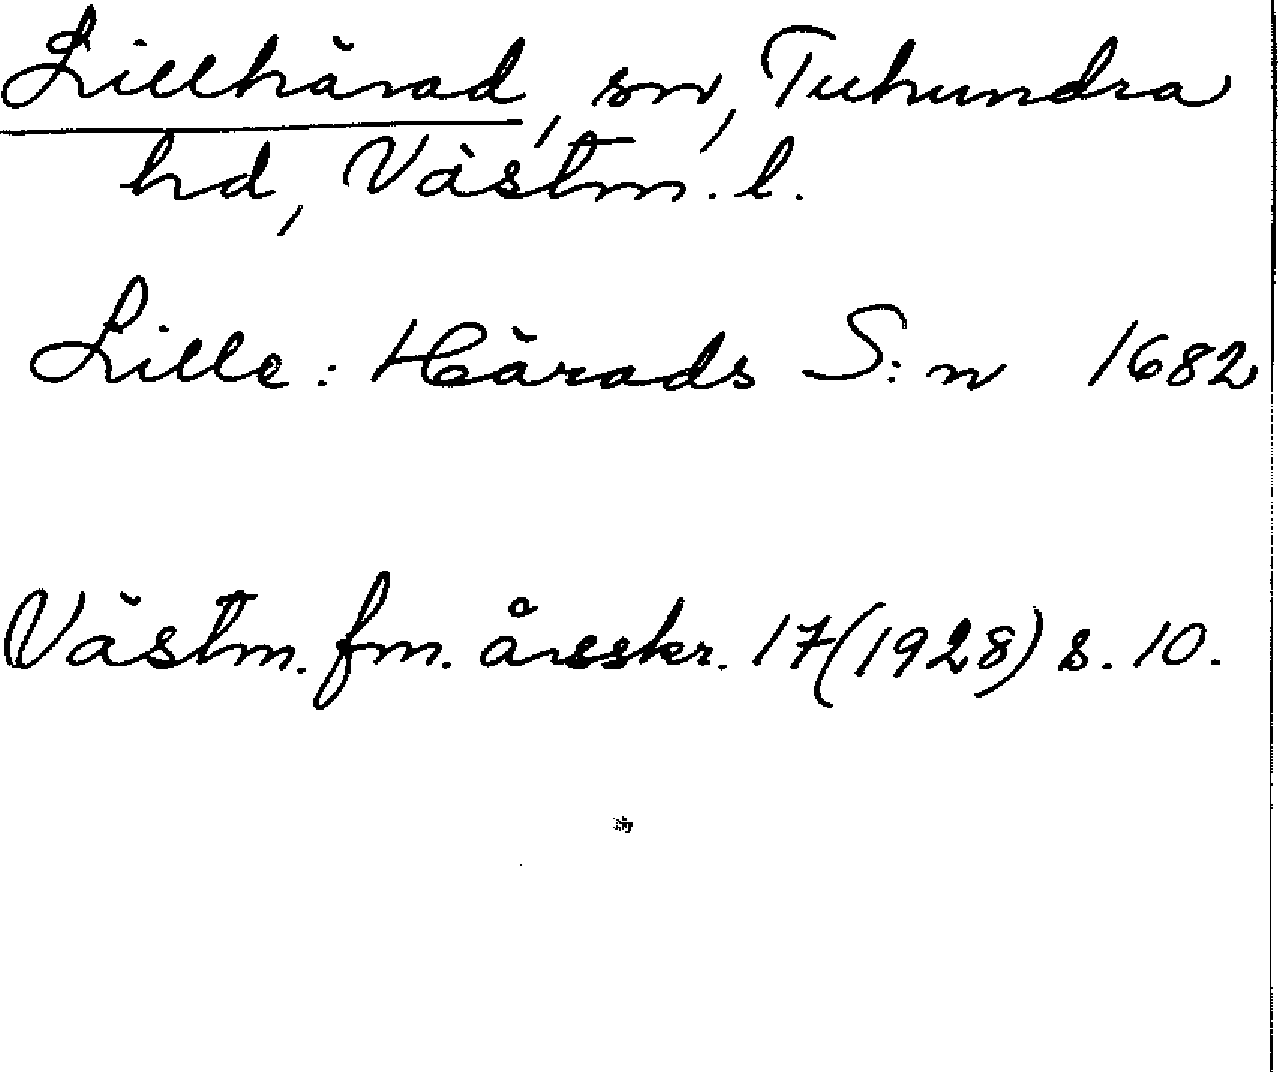 Lillhärad, sn, Tuhundra
hd, Västm. l.
Lille: Härads S:n 1682
Västm. fm. årsskr. 17(1928) s. 10.